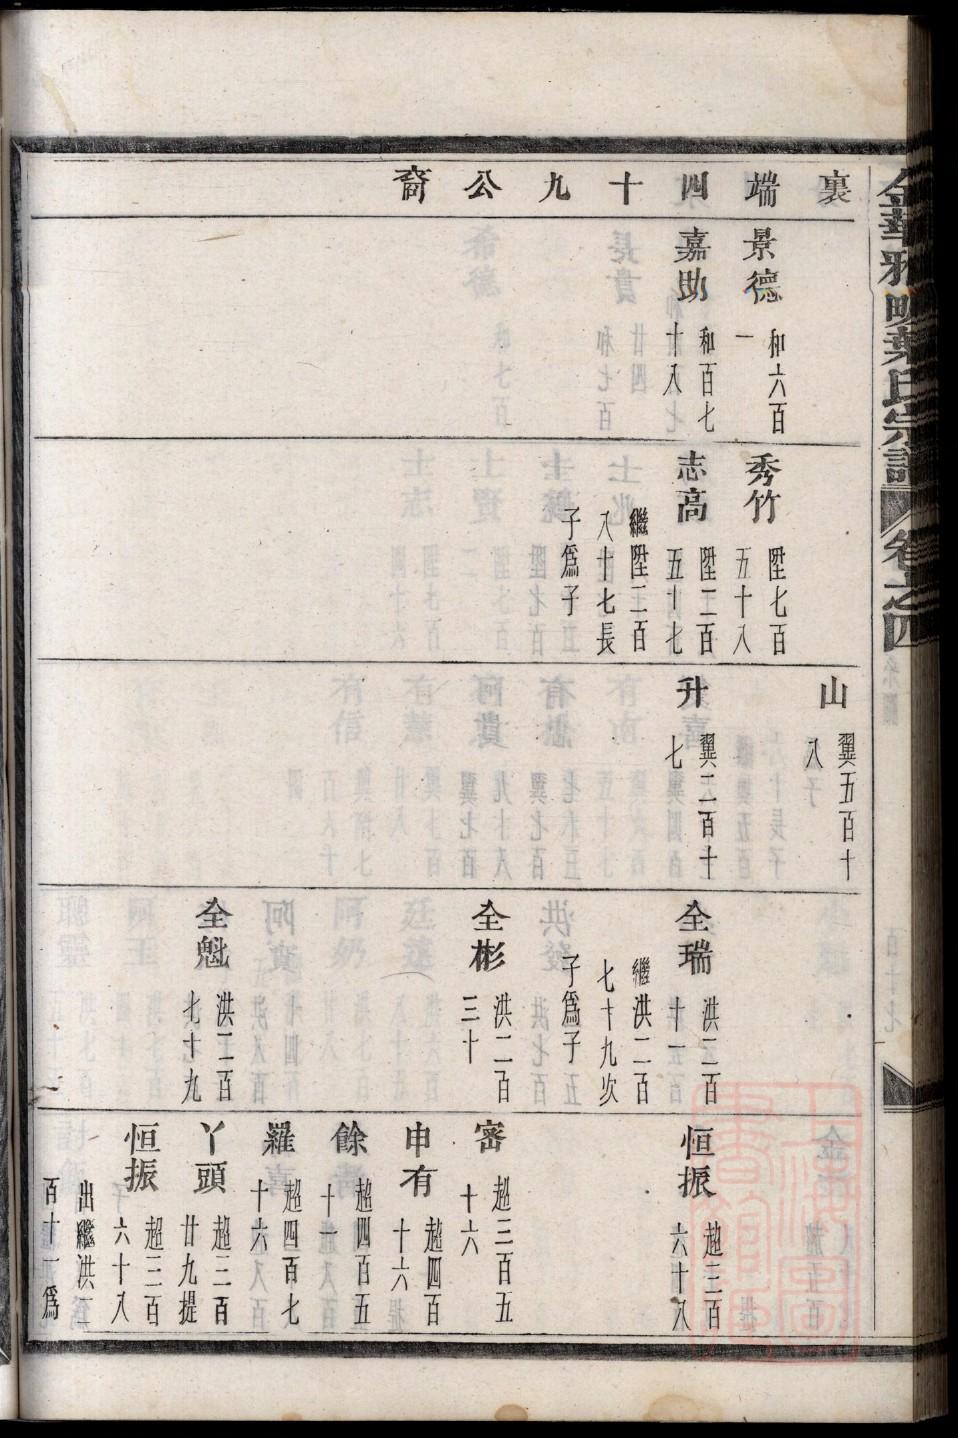 金華雅畈葉氏宗譜
卷之四
裏端四十九公裔
景德
和六百
一
嘉助
和百七
十八
秀竹
陞七百
五十八
志高
陞二百
五十七
繼陞三百
八十七長
子爲子
山
翼五百十
八
升
翼二百十
七
全瑞
洪三百
十一
繼洪二百
七十九次
子爲子
全彬
洪二百
三十
全魁
洪二百
七十九
恒振
趙三百
六十八
寄
趙三百五
十六
申有
趙四百
十六
餘
趙四百五
十一
羅
趙四百七
十六
丫頭
趙三百
廿九提
恒振
趙三百
六十八
出繼洪三
百十一爲